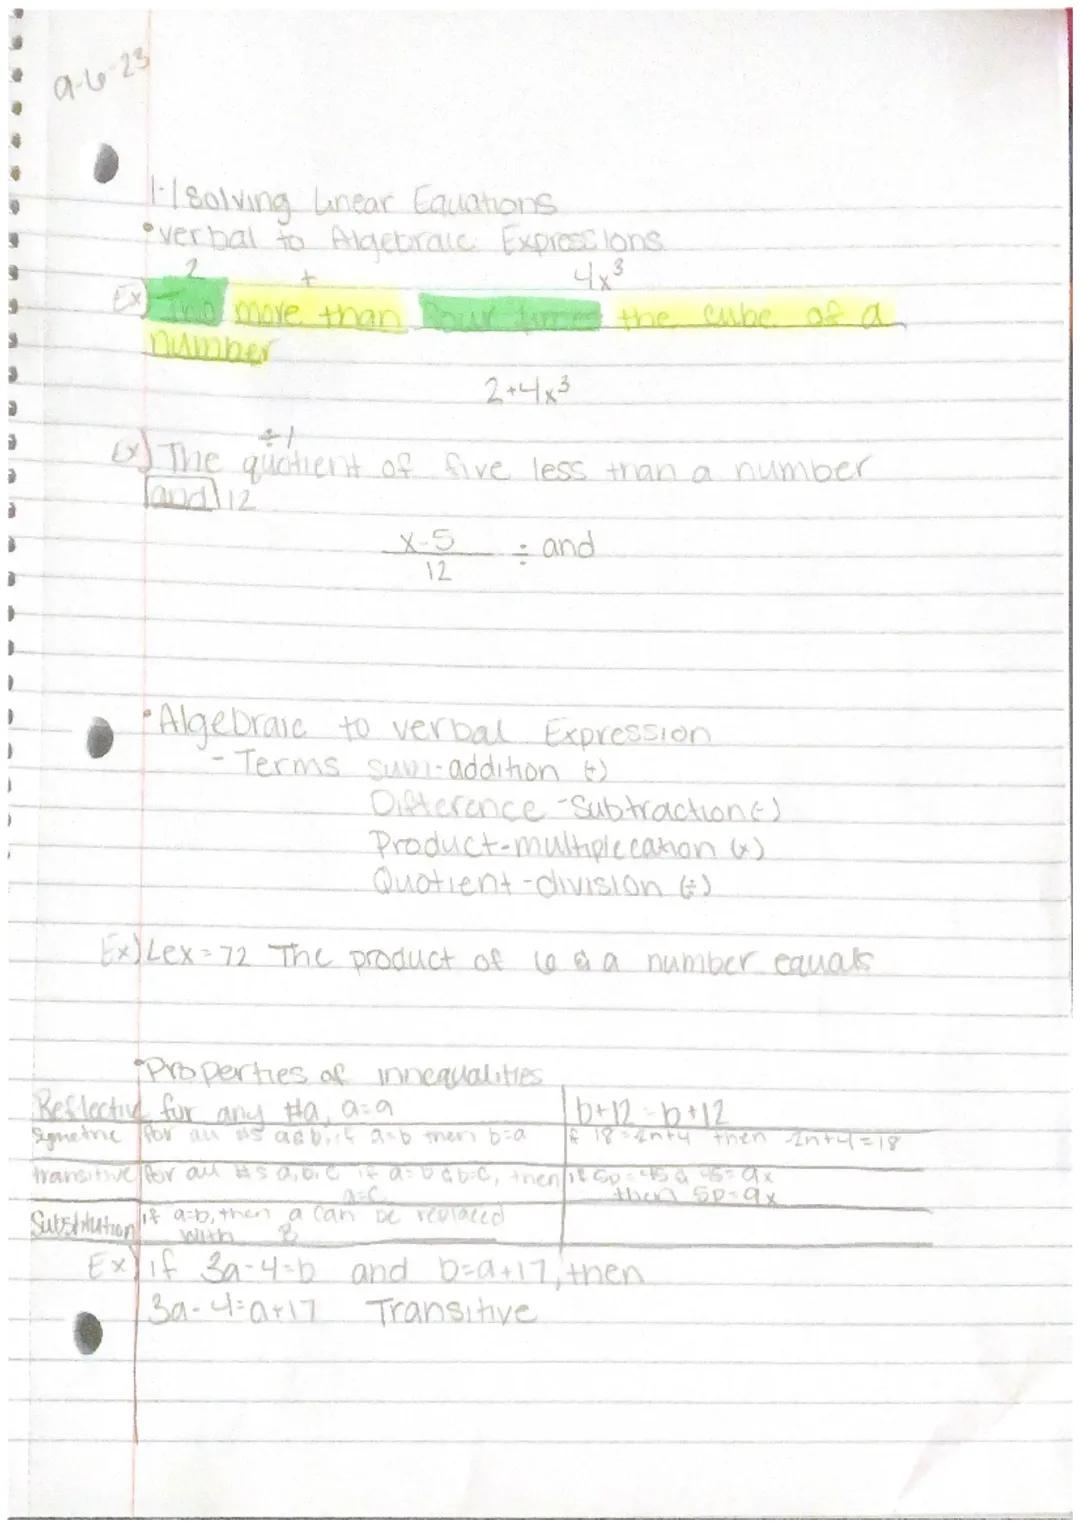 9-6-23
1-1 Solving Linear Equations
• verbal to Algebraic Expressions
2 + 4x³
Ex) Two more than four times the cube of a
number
2+4x³
÷ /
Ex) The quotient of five less than a number
and 12
x-5
÷ and
12
• Algebraic to verbal Expression
- Terms sum-addition (+)
Difference-Subtraction (-)
Product-multiplecation (x)
Quotient-division (÷)
Ex) 6x=72 The product of 6 & a number equals
• Properties of innequalities
Reflective for any #a, a=a b+12=b+12
Symetric for all #s a&b, if a=b then b=a if 18=-2n+4 then -2n+4=18
transitive for all #s a,b,c if a=b & b=c, then if 5p=45 & 45=9x
a=c then 5p=9x
Substitution if a=b, then a can be replaced
with
Ex) if 3a-4=b and b=a+17, then
3a-4=a+17 Transitive